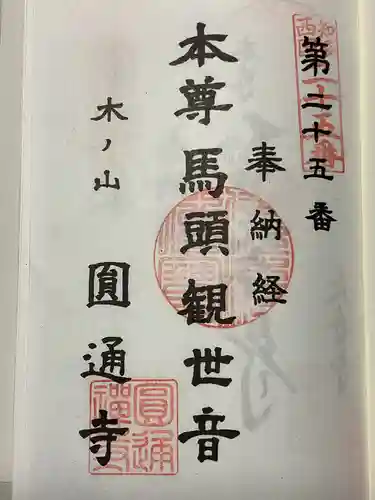 第二十五番
奉納経
本尊馬頭観世音
木ノ山
圓通寺
圓通